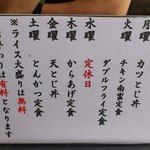 月曜　カツとじ丼
火曜　チキン南蛮定食
　　　ダブルフライ定食
水曜　定休日
木曜　からあげ定食
金曜　天とじ丼
土曜　とんかつ定食
※ライス大盛りは無料
は有料となります